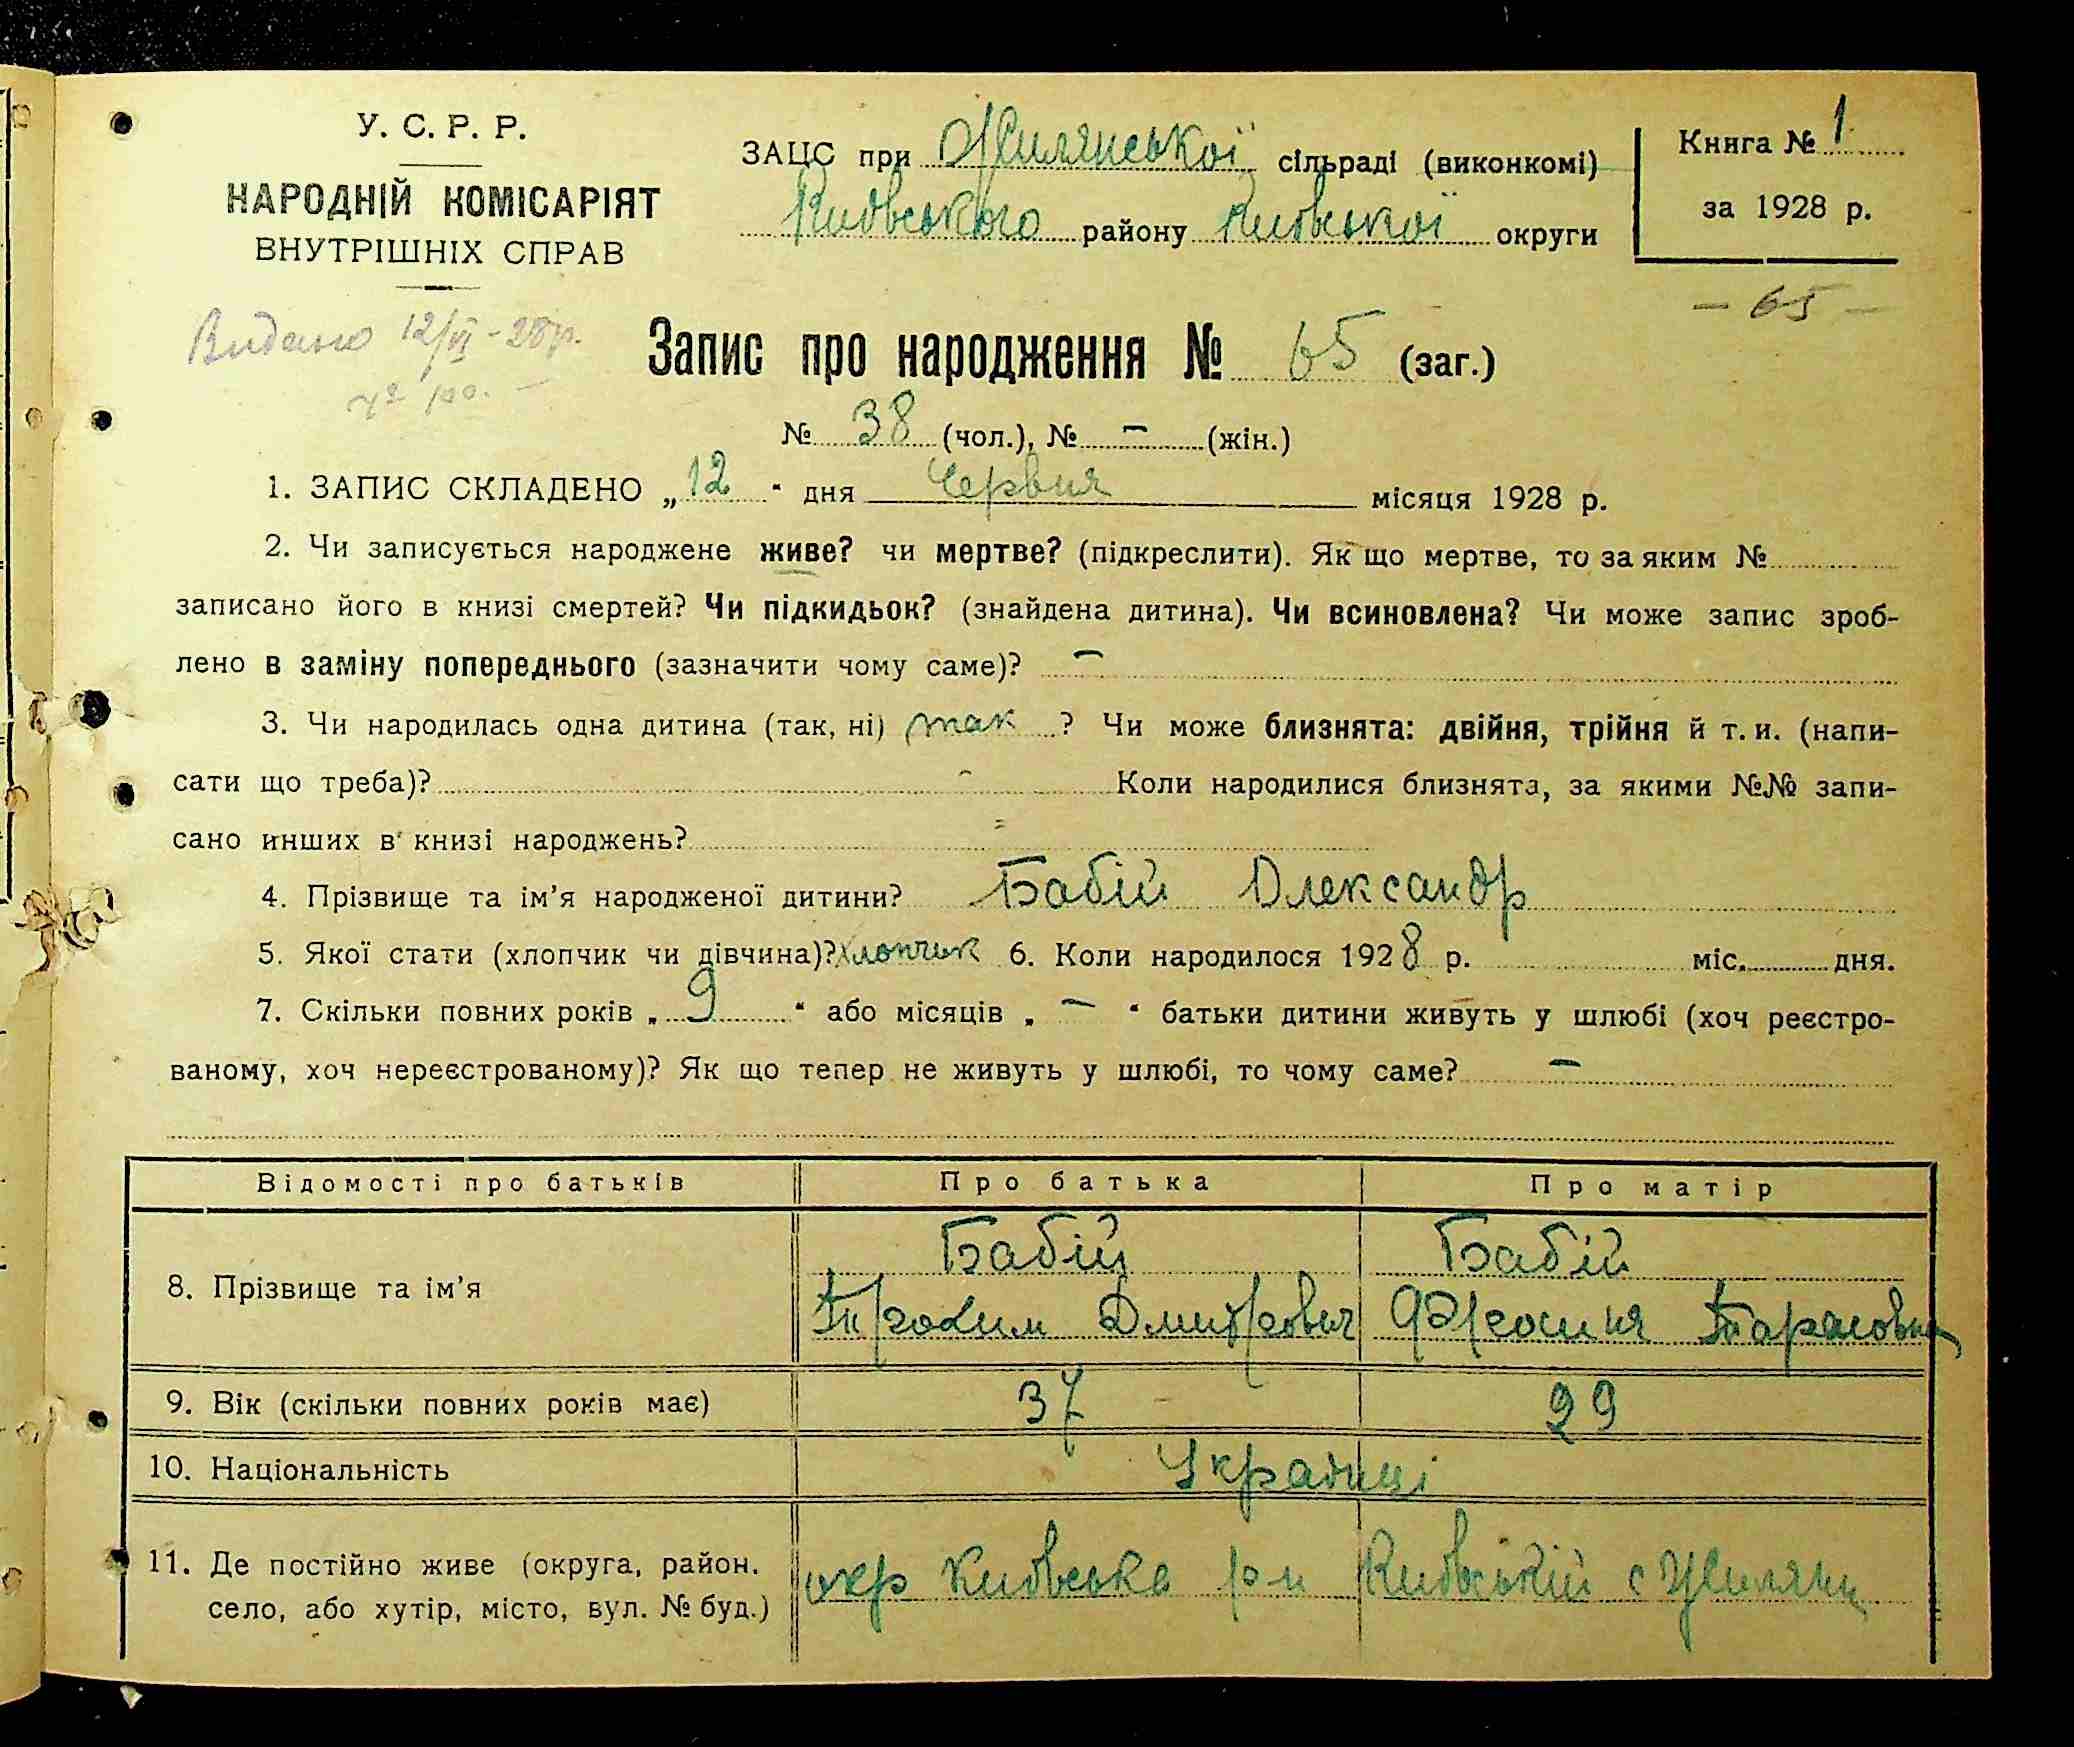 У. С. Р. Р.
НАРОДНІЙ КОМІСАРІЯТ
ВНУТРІШНІХ СПРАВ
ЗАЦС при Жилянської сільраді (виконкомі)
Київського району Київської округи
Книга № 1
за 1928 р.
– 65 –
Видано 12/VI – 28 р.
Запис про народження № 65 (заг.)
№ 38 (чол.), № – (жін.)
1. ЗАПИС СКЛАДЕНО „ 12 “ дня Червня місяця 1928 р.
2. Чи записується народжене живе? чи мертве? (підкреслити). Як що мертве, то за яким №
записано його в книзі смертей? Чи підкидьок? (знайдена дитина). Чи всиновлена? Чи може запис зроб-
лено в заміну попереднього (зазначити чому саме)? –
3. Чи народилась одна дитина (так, ні) так ? Чи може близнята: двійня, трійня й т. и. (напи-
сати що треба)? - Коли народилися близнята, за якими №№ запи-
сано инших в книзі народжень? =
4. Прізвище та ім’я народженої дитини? Бабій Олександр
5. Якої стати (хлопчик чи дівчина)? Хлопчик 6. Коли народилося 1928 р. міс. дня.
7. Скільки повних років „ 9 “ або місяців „ – “ батьки дитини живуть у шлюбі (хоч реєстро-
ваному, хоч нереєстрованому)? Як що тепер не живуть у шлюбі, то чому саме? –
Відомості про батьків Про батька Про матір
8. Прізвище та ім’я
Бабій
Трохим Дмитрович
Бабій
Фросиня Тарасовна
9. Вік (скільки повних років має) 37 29
10. Національність Українці
11. Де постійно живе (округа, район.
село, або хутір, місто, вул. № буд.)
окр Київська р-н Київській с Жиляни